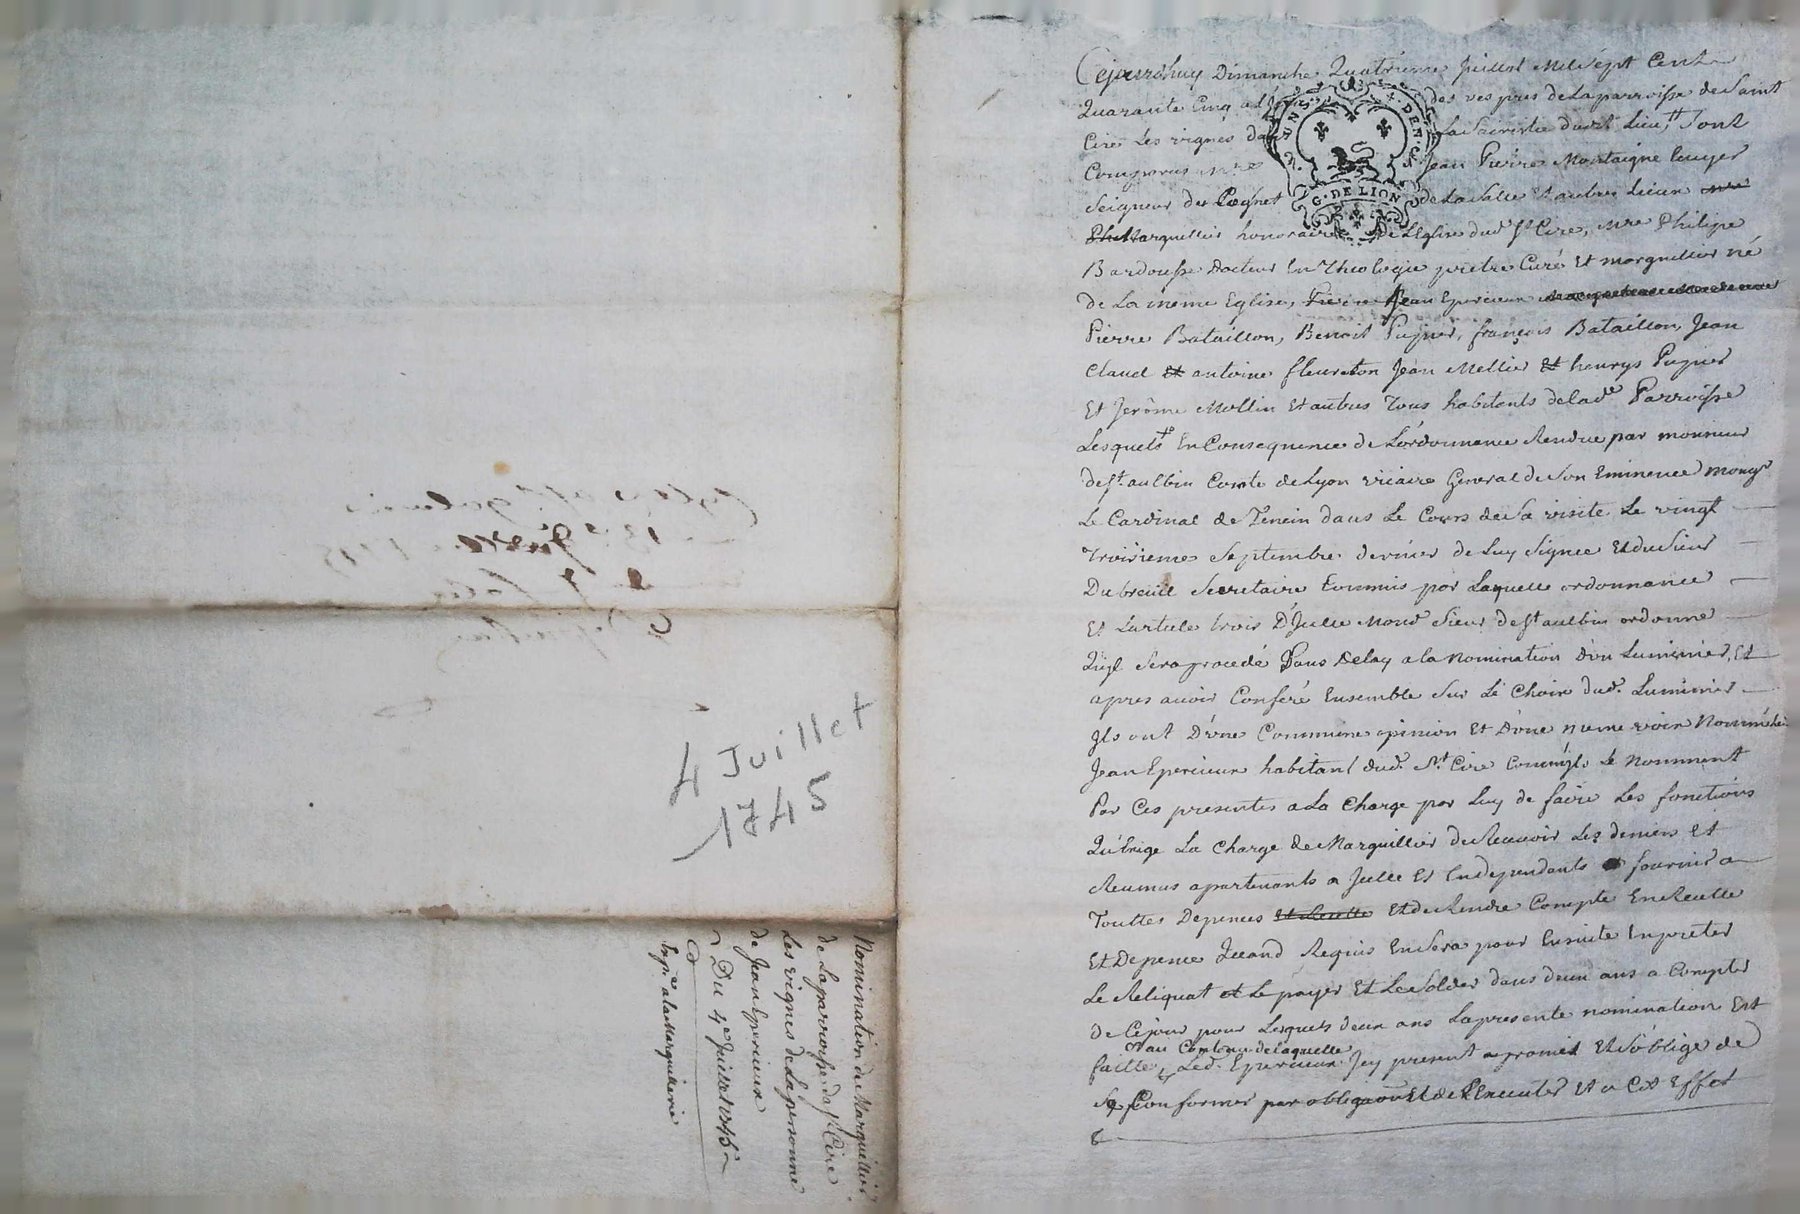 4 Juillet
1745
Nomination de Marguillier
de La parroisse de St Cire
Les vignes de La personne
de Jean Eperieux
Du 4e Juillet 1745
a la Marguilerie
Cejourdhuy Dimanche Quatrieme Juillet Mil Sept Cent
Quarante Cinq a des vespres de La parroisse de Saint
Cire Les vignes dans La Sacristie dudit Lieu, Sont
Comparus mre Jean Pierre Montaigne Ecuyer
Seigneur de Poignet de La Salle et autres Lieux
Marguillier honoraire de L'Eglise dud St Cire, mre Philipe
Bardousse Docteur En Theologie pretre Curé Et marguillier né
de La meme Eglise, Jean Eperieux
Pierre Bataillon, Benoit Pupier, françois Bataillon, Jean
Claud et antoine fleureton Jean Mellier et henrys Pupier
Et Jerôme Mollin Et autres Tous habitants de lade Parroisse
Lesquels En Consequence de L'ordonnance Rendue par monsieur
de St aulbin Comte de Lyon vicaire General de Son Eminence mongr
Le Cardinal de Tencin dans Le Cours de Sa visite Le vingt
Troisieme Septembre dernier de Luy Signee Et du Sieur
Dubreüil Secretaire Commis par Laquelle ordonnance
Et Larticle trois D'Jcelle Mond Sieur de St aulbin ordonne
Qu'jl Sera procedé Sans Delay a la Nomination D'un Luminier, Et
apres avoir Conferé Ensemble Sur Le Choix dud. Luminier
Jls ont D'une Commune opinion Et D'une meme voix Nommé led.
Jean Eperieux habitant dud. St Cire Comme jls Le Nomment
Par Ces presentes a La Charge par Luy de faire Les fonctions
Qu'Exige La Charge de Marguillier de Recevoir Les deniers Et
Revenus apartenants a Jcelle Et En dependants fournir a
Touttes Depences Et de Rendre Compte En Recette
Et Depence Quand Requis En Sera pour Ensuite En preter
Le Reliquat et Le payer Et Le Solder dans deux ans a Compter
de Cejour pour Lesquels deux ans La presente nomination Est
au Contenu de laquelle
faitte, Led. Eperieux Jcy present a promis Et S'oblige de
Se Conformer par Et de L'Executer Et a Cet Effet